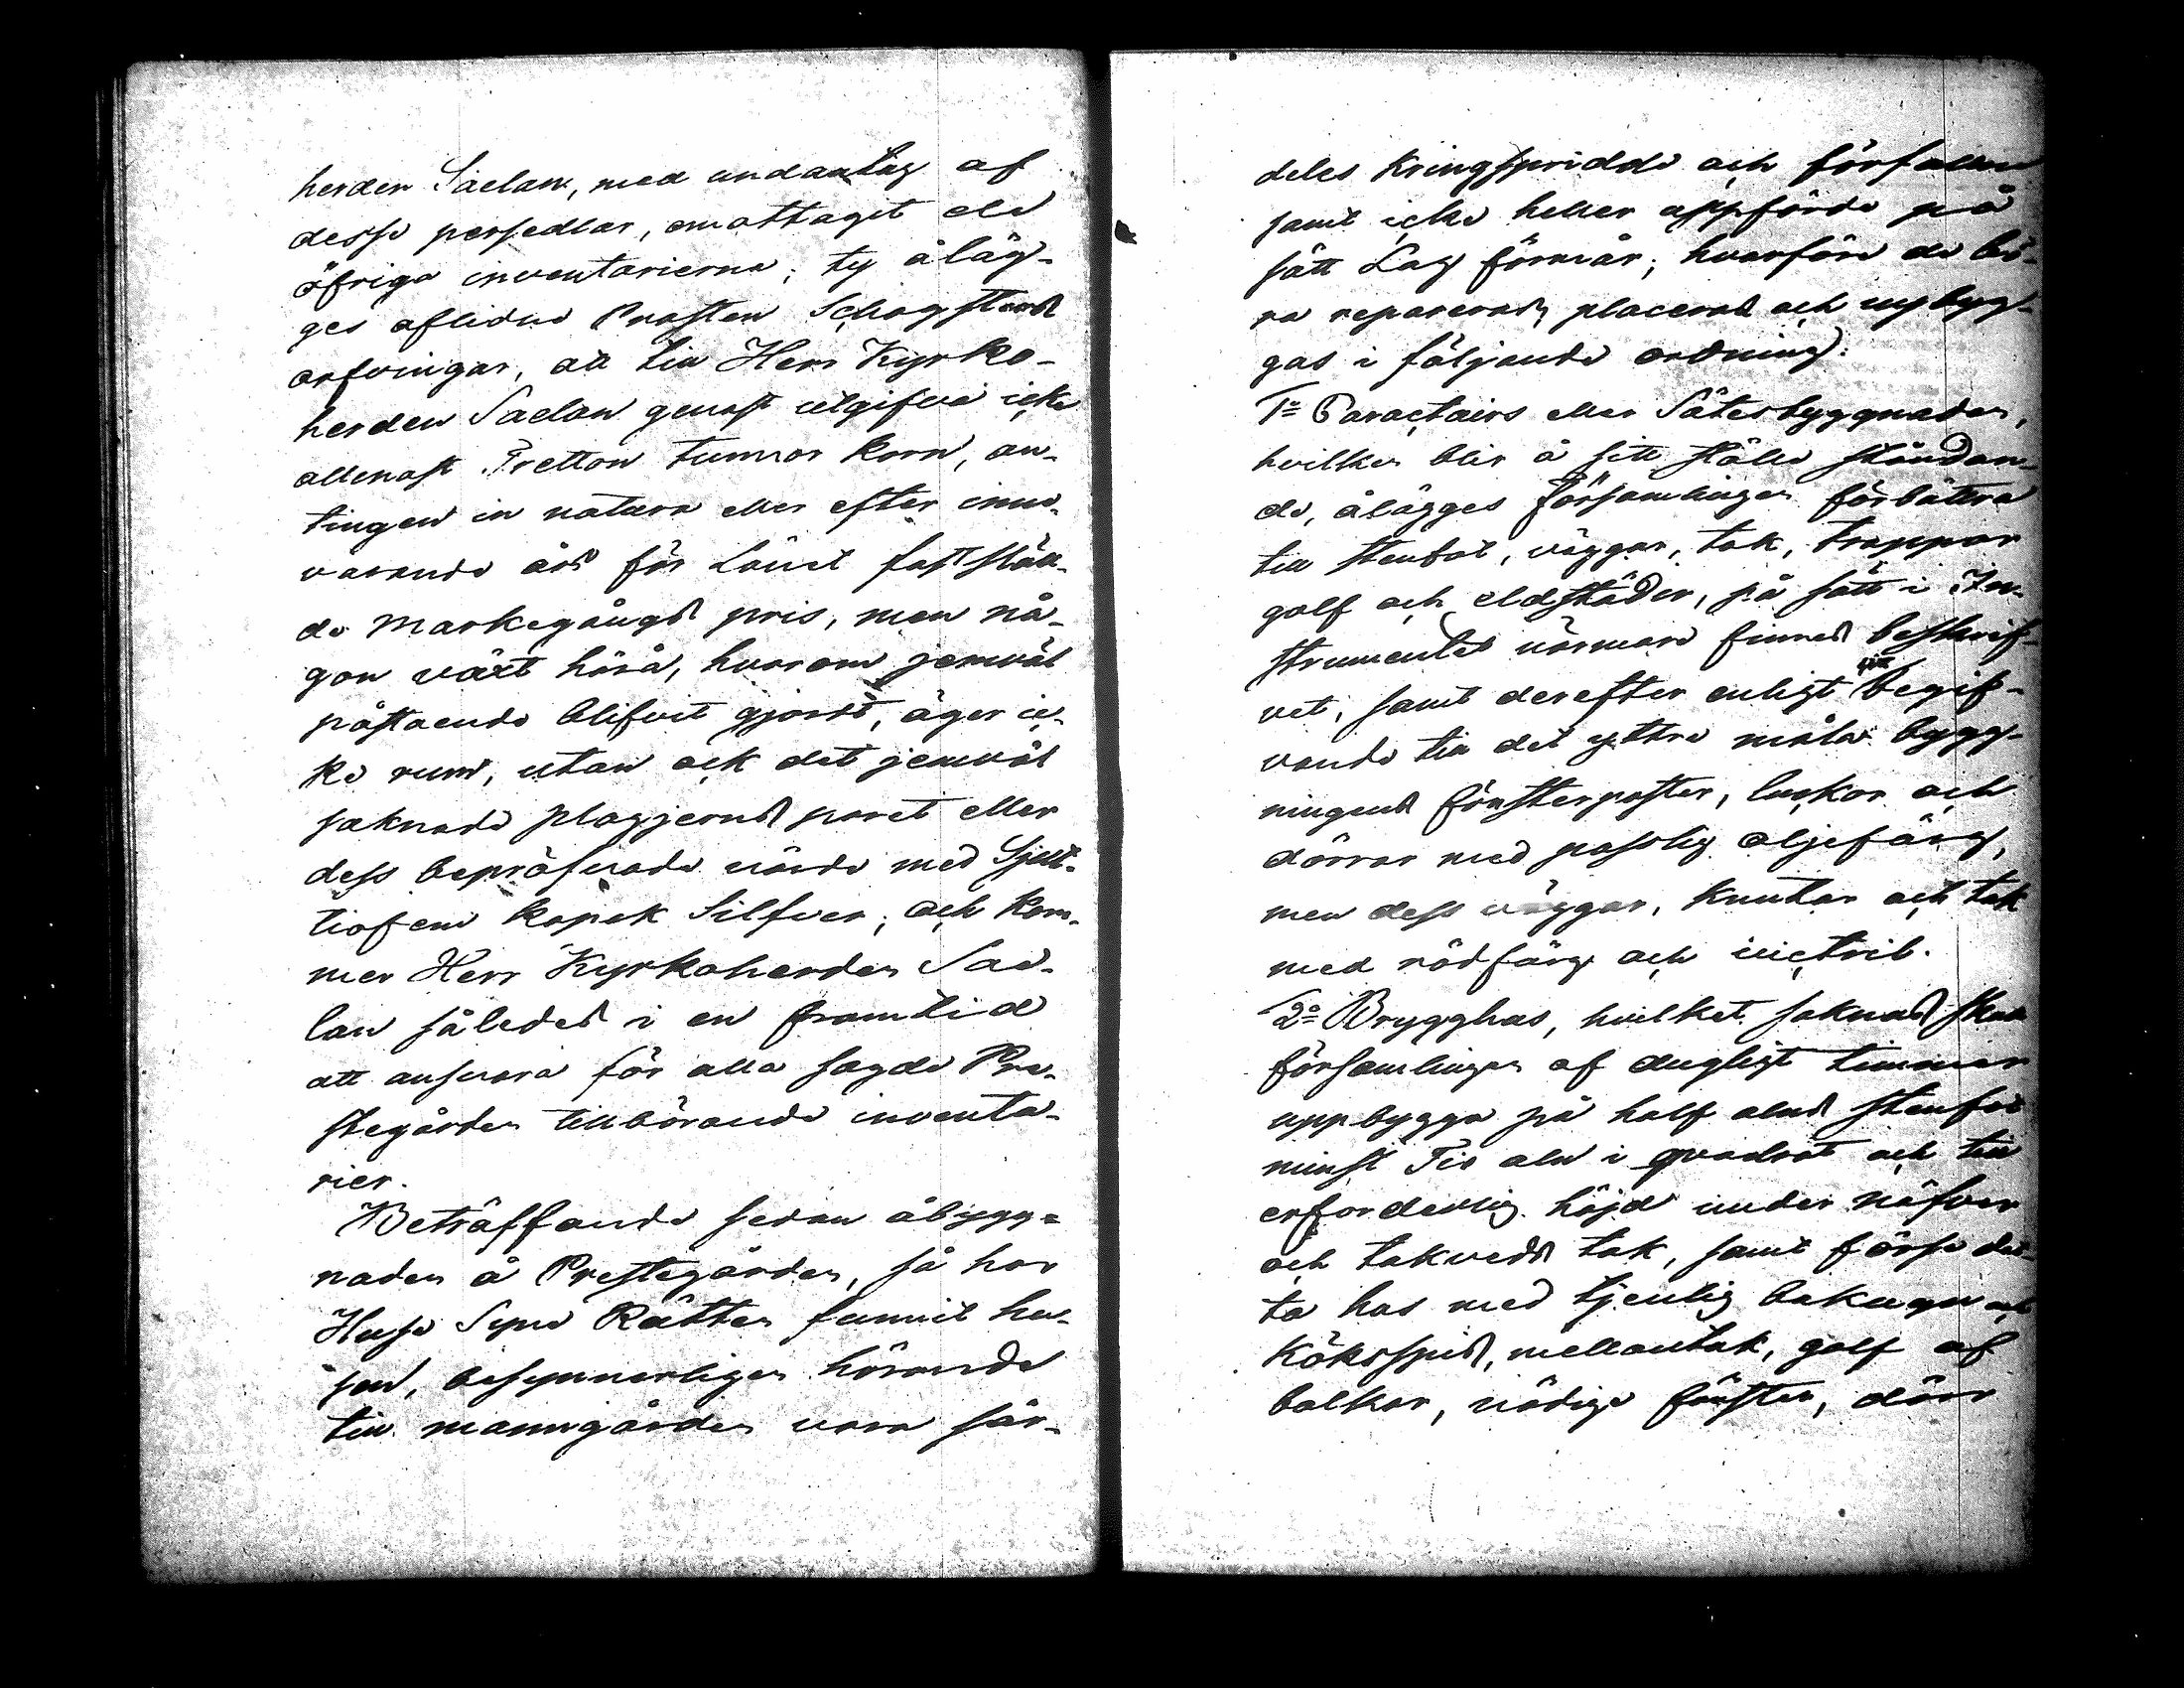 herden Saelan, med undantag af
desse persedlar, emottagit alla
öfriga inventarierna; ty åläg-
ges aflidne Prosten Schogsters
arfvingar, att till Herr Kyrko-
herden Saelan genast utgifva icke
allenast Tretton tunnor korn, an-
tingen in natura eller efter inne-
varande års för Länet fastställ-
de Markegångs pris, men nå-
gon växt härå, hvarom jemväl
påstående blifvit gjordt, äger ic-
ke rum, utan ock det jemväl
saknade plaggjerns paret eller
dess bepröfvade värde med Sjut-
tiofem kopek Silfver; och kom-
mer Herr Kyrkoherden Sae-
lan således i en framtid
att ansvara för alla sagde Pre-
stegården tillhörande inventa-
rier.
Beträffande sedan åbygg-
naden å Prestegården, så har
Huse Syns Rätten funnit hu-
sen, besynnerligen hörande
till manngården vara sär-
deles kringspridde och förfallna
samt icke heller uppförde på
sätt Lag förmår; hvarföre de bö-
ra reparerads, placeras och nybyg-
gas i följande ordning:
1o Caractairs eller Sätesbyggnaden,
hvilken blir å sitt ställe ståndan-
de, ålägges församlingen förbättra
till stenfot, väggar, tak, trappor
golf och eldstäder, på sätt i In-
strumentet närmare finnes beskrif-
vet, samt derefter enligt sitt begif-
vande till det yttre måla bygg-
ningens fönsterposter, luckor och
dörrar med passlig oljefärg,
men dess väggar, knutar och tak
med rödfärg och victril.
2o Brygghus, hvilket saknas skall
församlingen af dugligt timmer
uppbygga på half alns stenfot
minst Tio aln i quadrat och till
erforderlig höjd under näfver
och takveds tak, samt förse det-
ta hus med tjenlig bakugn och
köksspis, mellantak, golf af
balkar, nödige fönster, dörr